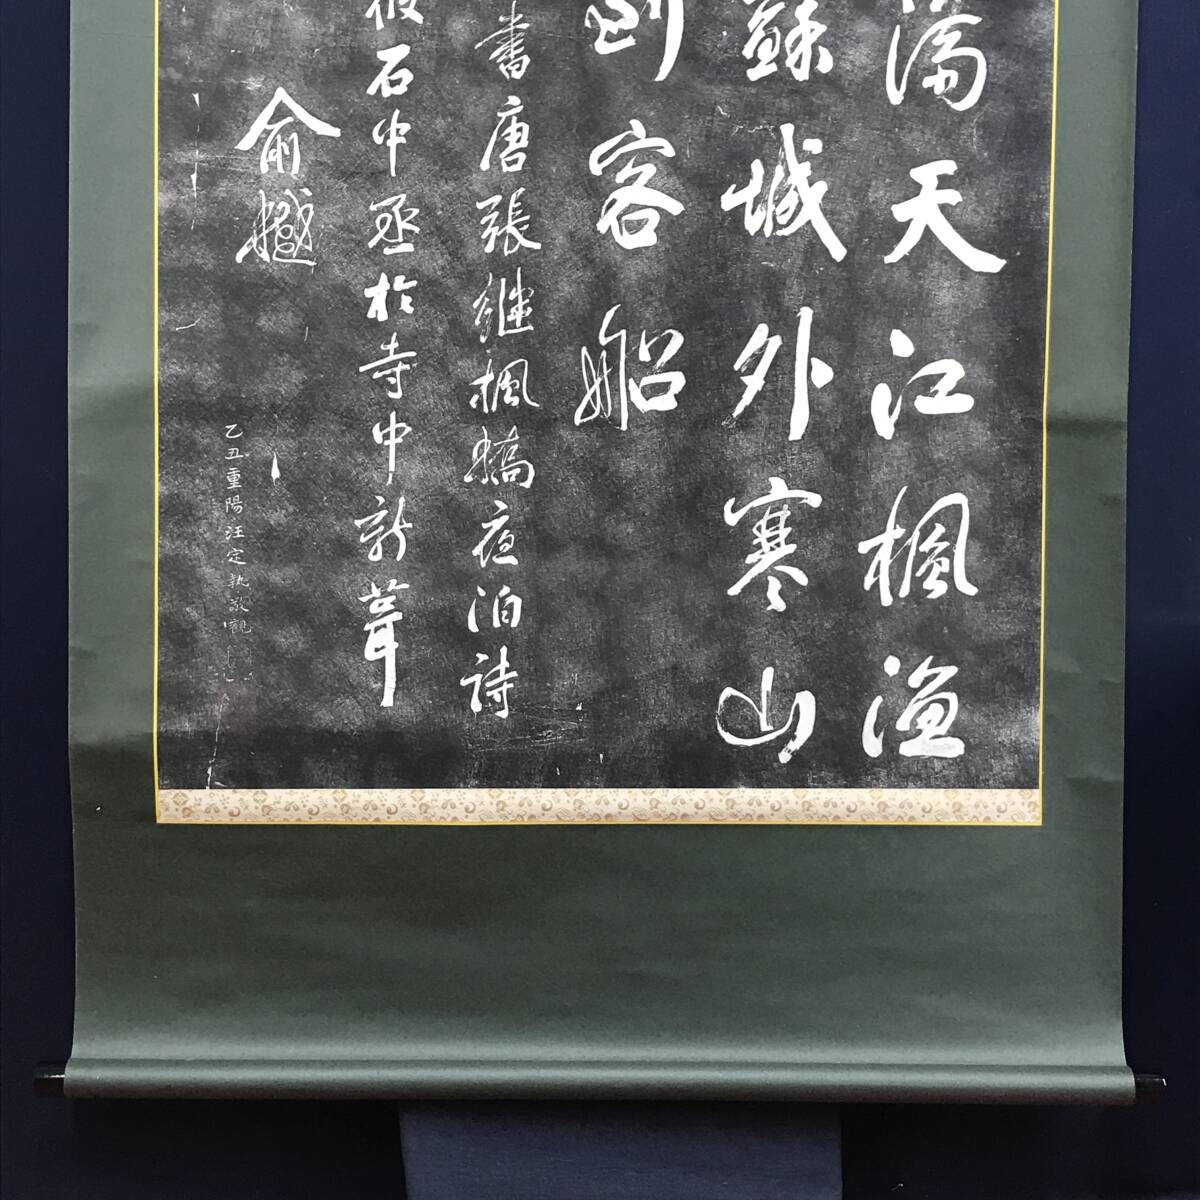 滿天江楓漁
蘇城外寒山
到客船
書唐張繼楓橋夜泊詩
筱石中丞於寺中新葺
俞樾
乙丑重陽汪定執敬觀